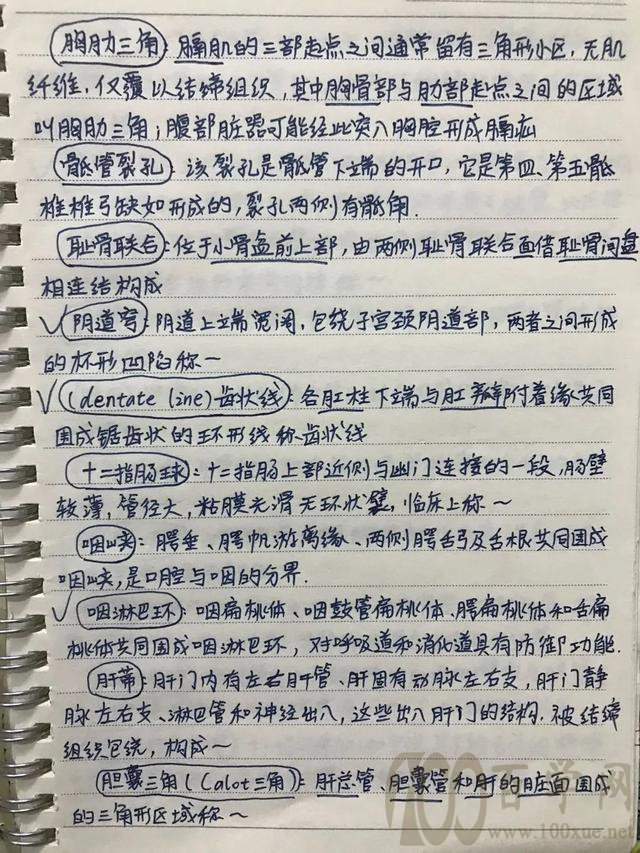 胸肋三角:膈肌的三部起点之间通常留有三角形小区,无肌
纤维,仅覆以结缔组织,其中胸骨部与肋部起点之间的区域
叫胸肋三角;腹部脏器可能经此突入胸腔形成膈疝
骶管裂孔:该裂孔是骶管下端的开口,它是第四、第五骶
椎椎弓缺如形成的,裂孔两侧有骶角.
耻骨联合:位于小骨盆前上部,由两侧耻骨联合面借耻骨间盘
相连结构成
√阴道穹:阴道上端宽阔,包绕子宫颈阴道部,两者之间形成
的杯形凹陷称~
√(dentate line)齿状线:各肛柱下端与肛瓣附着缘共同
围成锯齿状的环形线称齿状线
十二指肠球:十二指肠上部近侧与幽门连接的一段,肠壁
较薄,管径大,粘膜光滑无环状襞,临床上称~
咽峡:腭垂、腭帆游离缘、两侧腭舌弓及舌根共同围成
咽峡,是口腔与咽的分界.
√咽淋巴环:咽扁桃体、咽鼓管扁桃体、腭扁桃体和舌扁
桃体共同围成咽淋巴环,对呼吸道和消化道具有防御功能.
肝蒂:肝门内有左右肝管、肝固有动脉左右支,肝门静
脉左右支、淋巴管和神经出入,这些出入肝门的结构.被结缔
组织包绕,构成~
胆囊三角(Calot三角):肝总管、胆囊管和肝的脏面围成
的三角形区域称~
100百学网
www.100xue.net